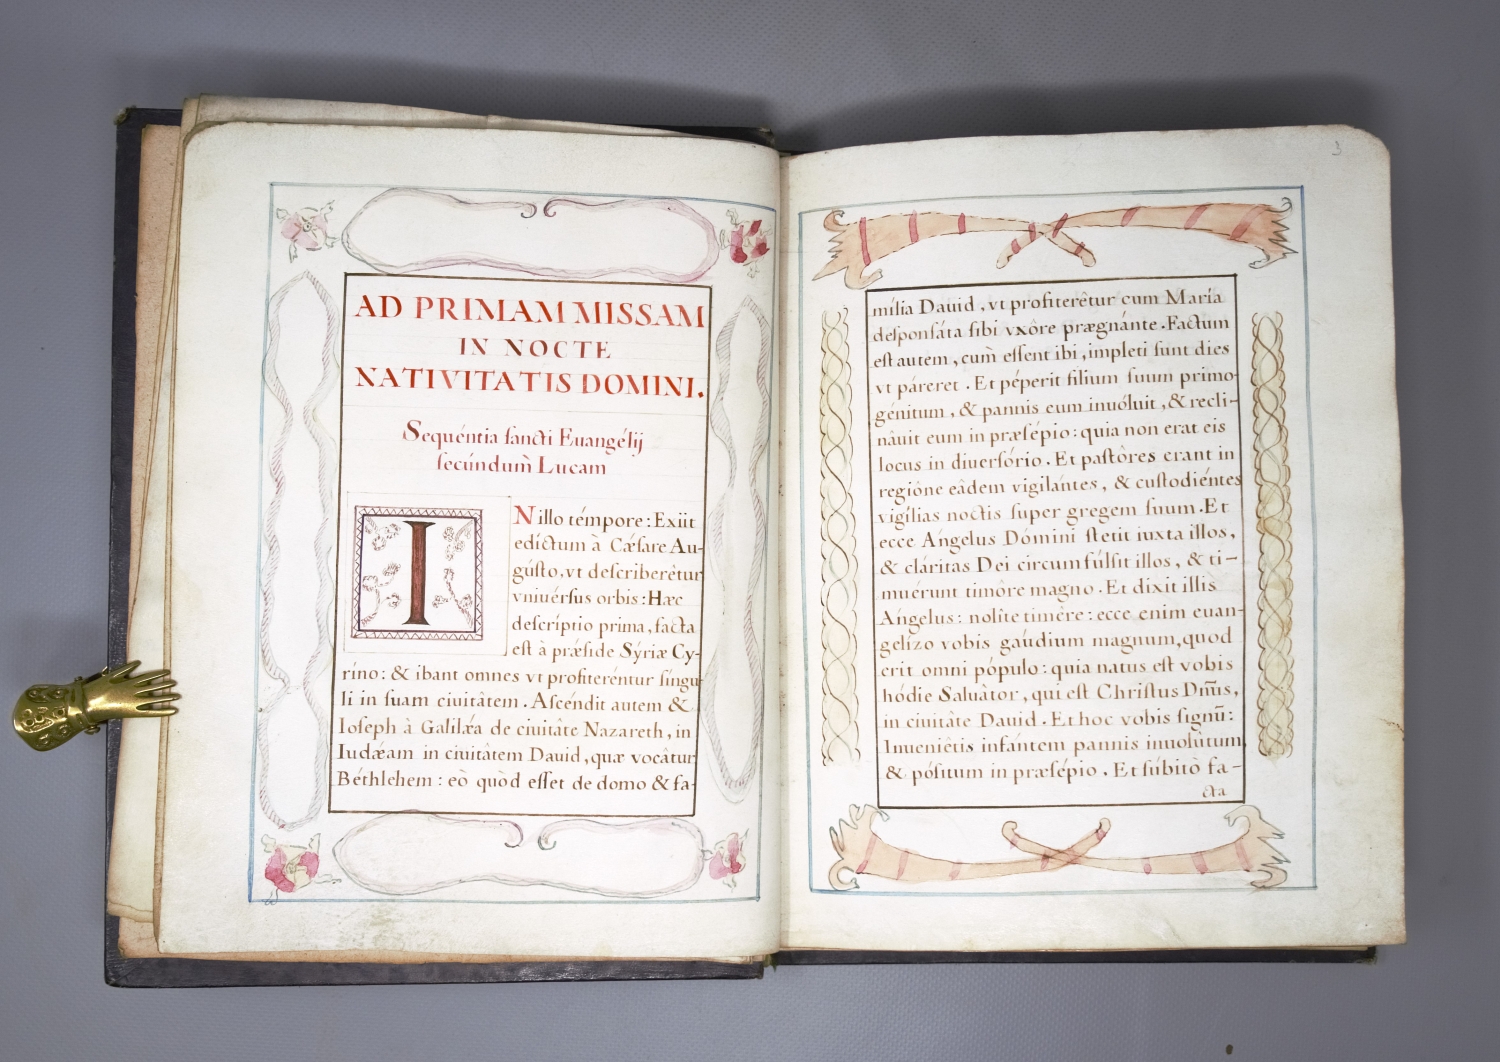 AD PRIMAM MISSAM
IN NOCTE
NATIVITATIS DOMINI.
Sequéntia ſancti Euangélij
ſecúndum̀ Lucam
I
N illo témpore: Exiit
edíctum à Cæſare Au-
gúſto, vt deſcriberêtur
vniuérſus orbis: Hæc
deſcríptio prima, facta
eſt à prǽſide Sýriæ Cy-
ríno: & ibant omnes vt profiteréntur ſíngu-
li in ſuam ciuitâtem. Aſcéndit autem &
Ioſeph à Galilǽa de ciuitâte Nazareth, in
Iudǽam in ciuitâtem Dauid, quæ vocâtur
Béthlehem: eò quòd eſſet de domo & fa-
3
mília Dauid, vt profiterêtur cum María
deſponſáta ſibi vxôre prægnánte. Factum
eſt autem, cum̀ eſſent ibi, impleti ſunt dies
vt páreret. Et péperit filium ſuum primo-
génitum, & pannis eum inuóluit, & recli-
nâuit eum in præſépio: quia non erat eis
locus in diuerſório. Et paſtôres erant in
regióne eâdem vigilántes, & cuſtodiéntes
vigílias noctis ſuper gregem ſuum. Et
ecce Angelus Dómini ſtetit iuxta illos,
& cláritas Dei circumfúlſit illos, & ti-
muérunt timôre magno. Et dixit illis
Angelus: nolíte timêre: ecce enim euan-
gelízo vobis gaúdium magnum, quod
erit omni pópulo: quia natus eſt vobis
hódie Saluâtor, qui eſt Chriſtus Dn̄us,
in ciuitâte Dauid. Et hoc vobis ſignū:
Inueniêtis infántem pannis inuolûtum,
& póſitum in præſépio. Et ſúbitò fa-
cta